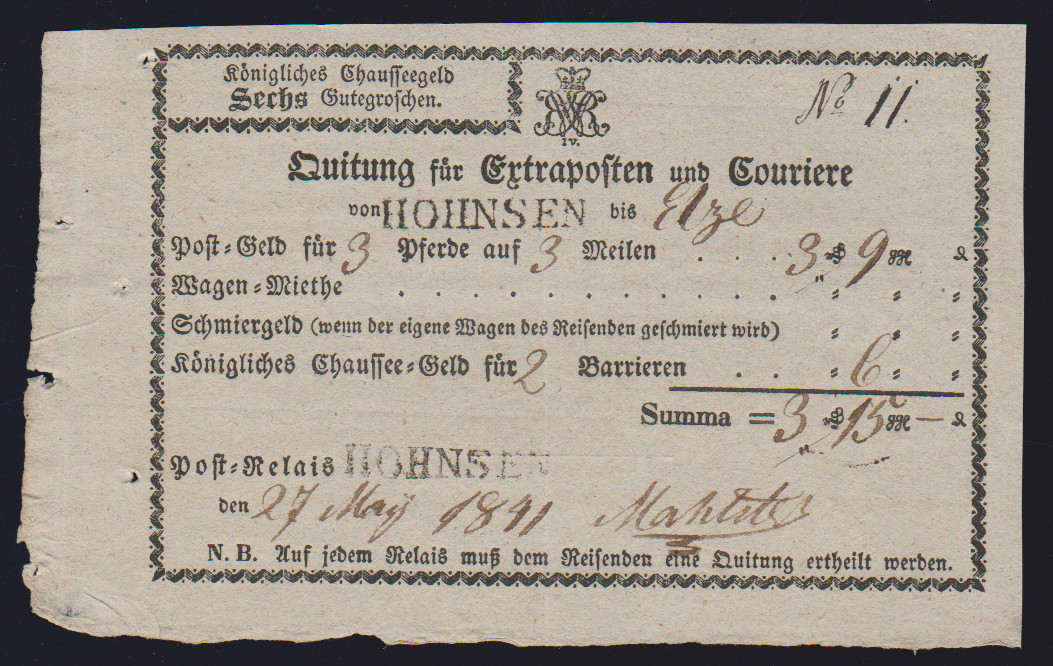 Königliches Chausseegeld
Sechs Gutegroschen.
IV.
No 11.
Quitung für Extraposten und Couriere
von HOHNSEN bis Elze
Post-Geld für 3 Pferde auf 3 Meilen . . . 3 9
Wagen-Miethe . . . . . . . . . . . " " "
Schmiergeld (wenn der eigene Wagen des Reisenden geschmiert wird) " " "
Königliches Chaussee-Geld für 2 Barrieren . . " 6 " "
Summa = 3 15 —
Post-Relais HOHNSEN
den 27 May 1841
N. B. Auf jedem Relais muß dem Reisenden eine Quitung ertheilt werden.